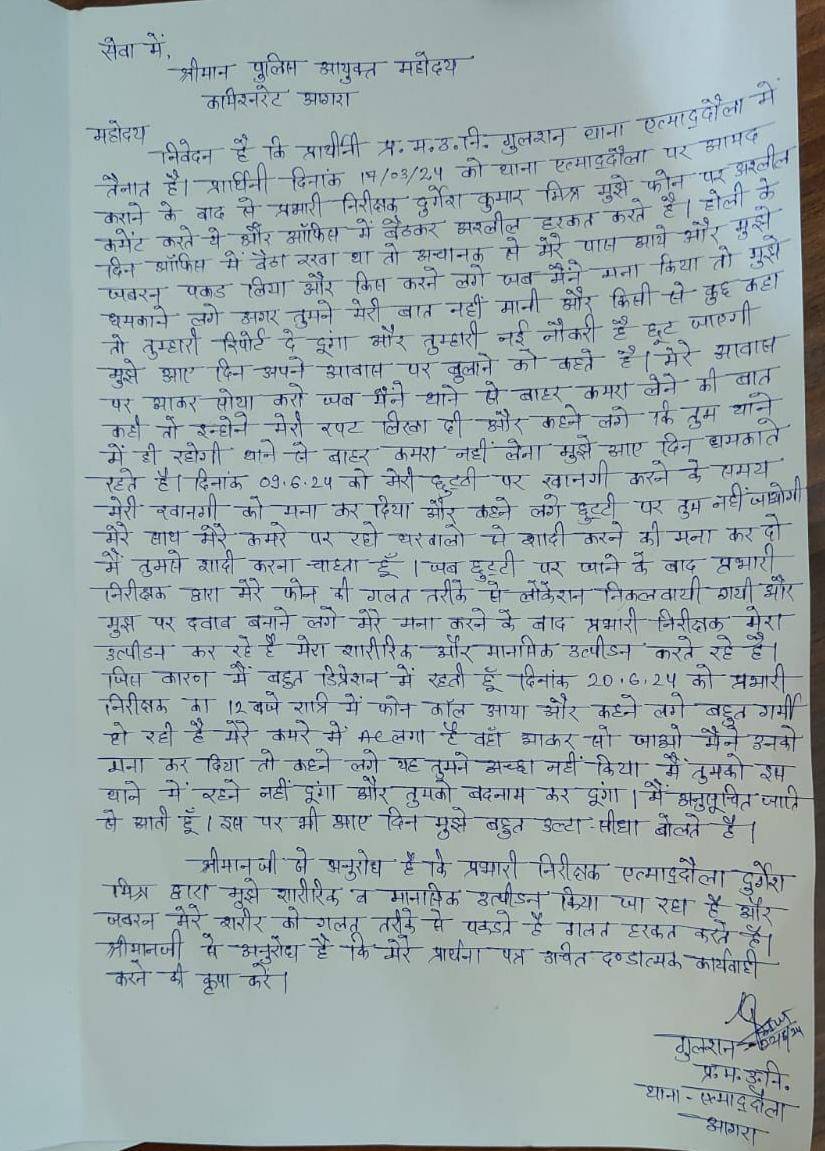 सेवा में,
श्रीमान पुलिस आयुक्त महोदय
कमिश्नरेट आगरा
महोदय
निवेदन है कि प्रार्थीनी प्र.म.उ.नि. गुलशन थाना एत्माद्दौला में
तैनात है। प्रार्थिनी दिनांक 17/03/24 को थाना एत्माद्दौला पर आमद
कराने के बाद से प्रभारी निरीक्षक दुर्गेश कुमार मिश्र मुझे फोन पर अश्लील
कमेंट करते थे और ऑफिस में बैठकर अश्लील हरकत करते है। होली के
दिन ऑफिस में बैठा रखा था तो अचानक से मेरे पास आये और मुझे
जबरन पकड लिया और किस करने लगे जब मैंने मना किया तो मुझे
धमकाने लगे अगर तुमने मेरी बात नहीं मानी और किसी से कुछ कहा
तो तुम्हारी रिपोर्ट दे दूंगा और तुम्हारी नई नौकरी है छूट जाएगी
मुझे आए दिन अपने आवास पर बुलाने को कहते है। मेरे आवास
पर आकर सोया करो जब मैंने थाने से बाहर कमरा लेने की बात
कही तो इन्होने मेरी रपट लिखा दी और कहने लगे कि तुम थाने
में ही रहोगी थाने से बाहर कमरा नहीं लेना मुझे आए दिन धमकाते
रहते है। दिनांक 09.6.24 को मेरी छुट्टी पर रवानगी करने के समय
मेरी रवानगी को मना कर दिया और कहने लगे छुट्टी पर तुम नहीं जाओगी
मेरे साथ मेरे कमरे पर रहो घरवालो से शादी करने की मना कर दो
मैं तुमसे शादी करना चाहता हूँ। जब छुट्टी पर जाने के बाद प्रभारी
निरीक्षक द्वारा मेरे फोन की गलत तरीके से लोकेशन निकलवायी गयी और
मुझ पर दवाब बनाने लगे मेरे मना करने के बाद प्रभारी निरीक्षक मेरा
उत्पीडन कर रहे है मेरा शारीरिक और मानसिक उत्पीडन करते रहे है।
जिस कारण मैं बहुत डिप्रेशन में रहती हूँ दिनांक 20.6.24 को प्रभारी
निरीक्षक का 12 बजे रात्रि में फोन कॉल आया और कहने लगे बहुत गर्मी
हो रही है मेरे कमरे में AC लगा है वहाँ आकर सो जाओ मैंने उनको
मना कर दिया तो कहने लगे यह तुमने अच्छा नहीं किया मैं तुमको इस
थाने में रहने नहीं दूंगा और तुमको बदनाम कर दूंगा। मैं अनुसूचित जाति
से आती हूँ। इस पर भी आए दिन मुझे बहुत उल्टा-सीधा बोलते है।
श्रीमानजी से अनुरोध है कि प्रभारी निरीक्षक एत्माद्दौला दुर्गेश
मिश्र द्वारा मुझे शारीरिक व मानसिक उत्पीडन किया जा रहा है और
जबरन मेरे शरीर को गलत तरीके से पकडते है गलत हरकत करते है।
श्रीमानजी से अनुरोध है कि मेरे प्रार्थना पत्र उचित दण्डात्मक कार्यवाही
करने की कृपा करें।
गुलशन
प्र.म.उ.नि.
थाना - एत्माद्दौला
आगरा